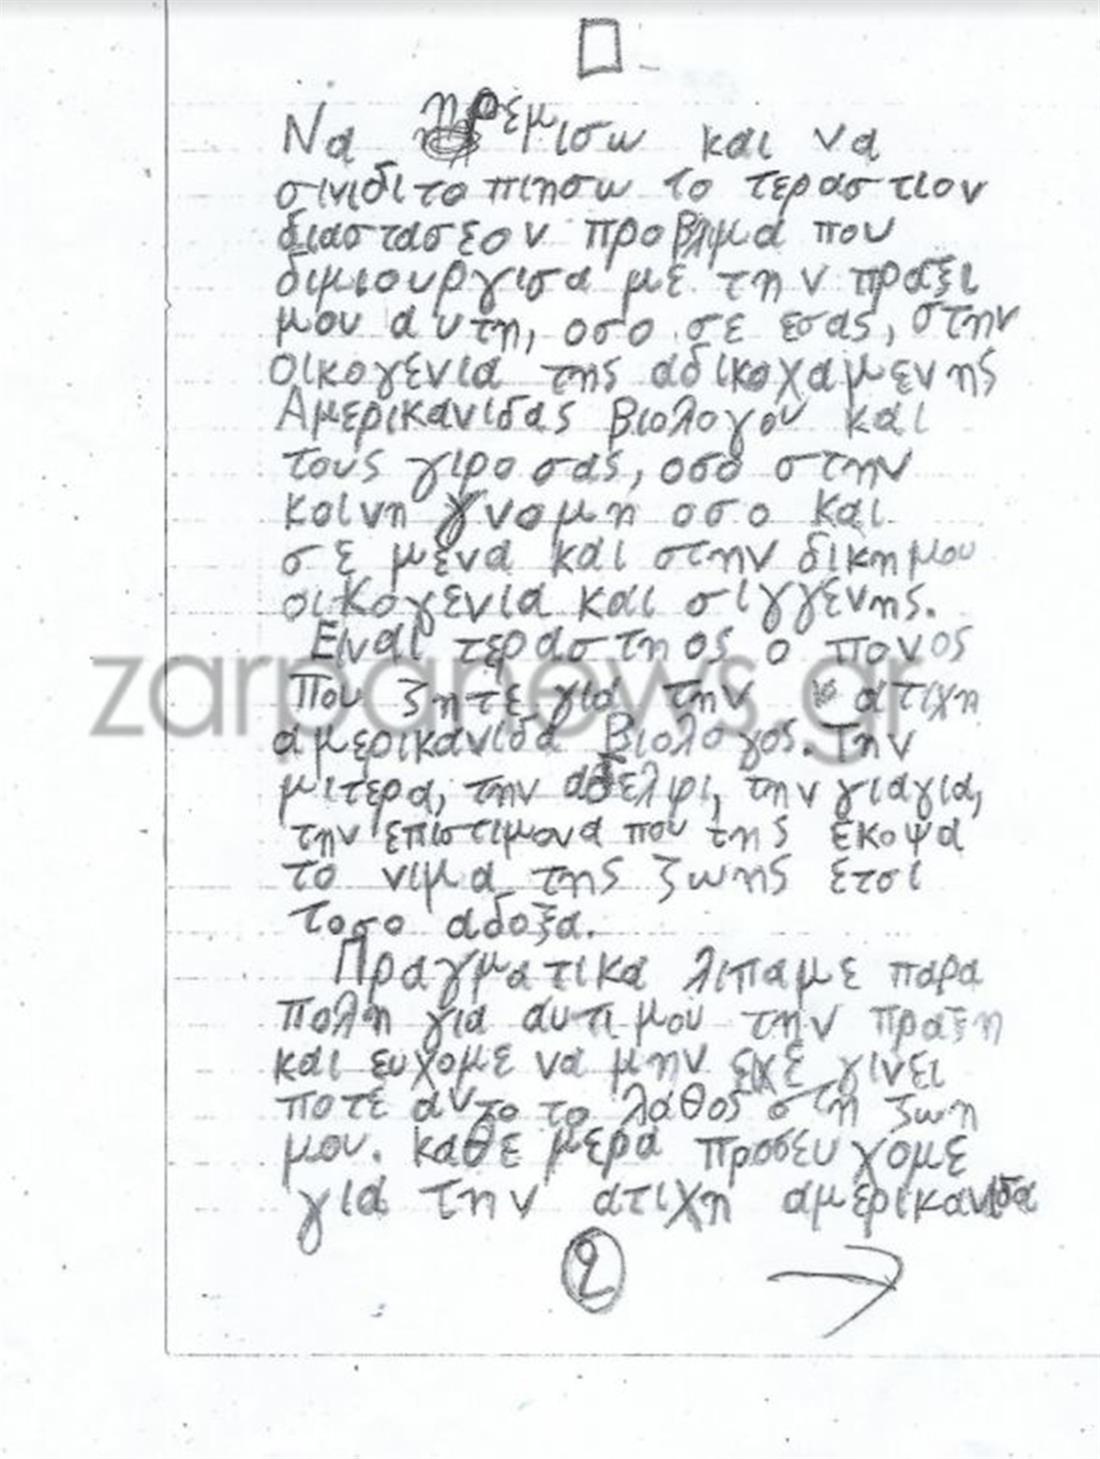 Να ηρεμισω και να
σινιδιτοπιησω το τεραστιον
διαστασεον προβλιμα που
διμιουργισα με την πραξι
μου αυτη, οσο σε εσας, στην
οικογενια της αδικοχαμενης
Αμερικανιδας βιολογου και
τους γιρο σας, οσο στην
κοινη γνομη οσο και
σε μενα και στην δικημου
οικογενια και σιγγενης.
Ειναι τεραστηος ο πονος
που ζητε για την ατιχη
αμερικανιδα βιολογος. Την
μιτερα, την αδελφι, την γιαγια,
την επιστιμονα που της εκοψα
το νιμα της ζωης ετσι
τοσο αδοξα.
Πραγματικα λιπαμε παρα
πολη για αυτι μου την πραξη
και ευχομε να μην ειχε γινει
ποτε αυτο το λαθος στη ζωη
μου. καθε μερα προσευχομε
για την ατιχη αμερικανιδα
2
zarpanews.gr